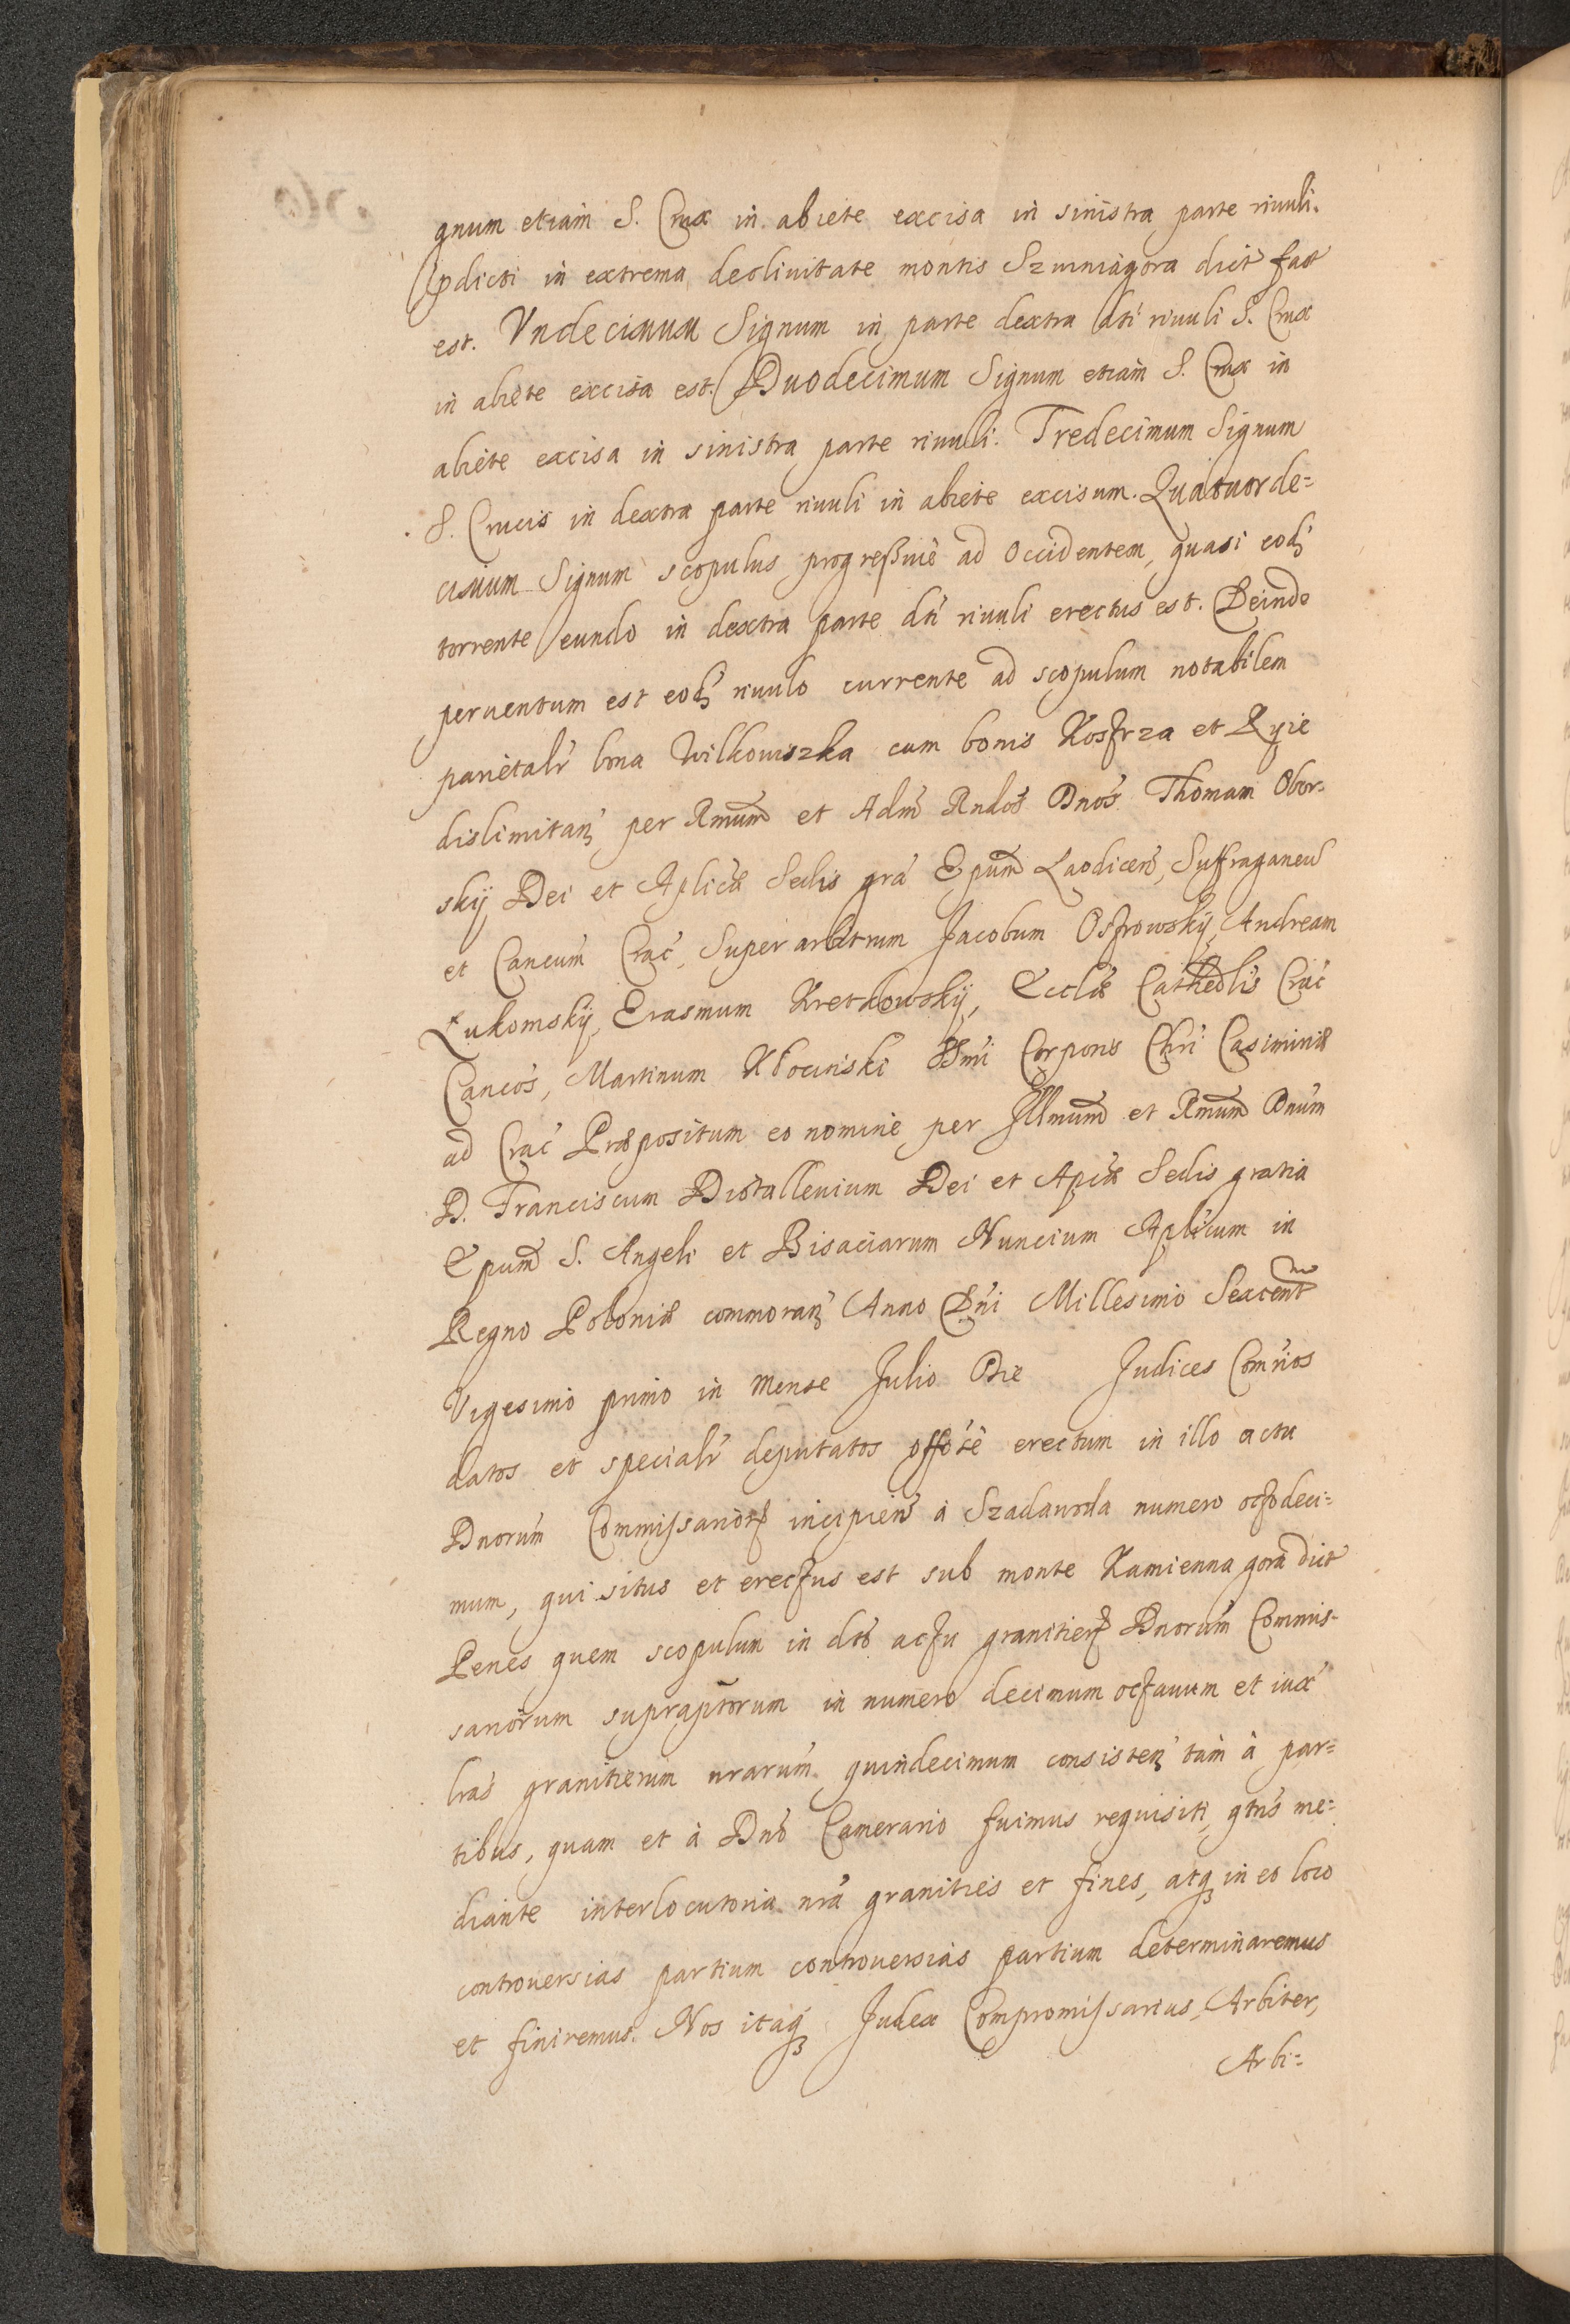 gnum etiam S. Crux in abiete excisa in sinistra parte riuuli.
pdicti in extrema decliuitate montis Szumiagora dict fact
est. Vndecimum Signum in parte dextra dti riuuli S. Crux
in abiete excisa est. Duodecimum Signum etiam S. Crux in
abiete excisa in sinistra parte riuuli. Tredecimum Signum
S. Crucis in dextra parte riuuli in abiete excisum. Quatuorde=
cimum Signum scopulus progreßiue ad Occidentem, quasi eodꝫ
torrente eundo in dextra parte dti riuuli erectus est. Deinde
peruentum est eodꝫ riuulo currente ad scopulum notabilem
parietalr bona Wilkowiszka cum bonis Kostrza et Ryie
dislimitanꝫ per Rmum et Adm Rndos Dnos Thomam Obor=
skij Dei et Aplicæ Sedis gra Epum Laodicen, Suffraganeu
et Cancum Crac, Superarbitrum Jacobum Ostrowskij, Andream
Łukomskij, Erasmum Kretkowskij, Ecclæ Cathedlis Crac
Cancos, Martinum Kłocinski SSmi Corporis Chri Casimiriæ
ad Crac Præpositum eo nomine per Illmum et Rmum Dnum
D. Franciscum Diotallenium Dei et Apcæ Sedis gratia
Epum S. Angeli et Bisaciarum Nuncium Aplicum in
Regno Poloniæ commoranꝫ Anno Dni Millesimo Sexcent mo
Vigesimo primo in Mense Julio Die Judices Comrios
datos et specialr deputatos offote erectum in illo actu
Dnorum Commissariorꝝ incipien à Szadawoda numero octodeci=
mum, qui situs et erectus est sub monte Kamienna gora dict
Penes quem scopulum in dto actu granitierꝝ Dnorum Commis=
sariorum supraptorum in numero decimum octauum et iuxa
lras granitierum nrarum quindecimum consistenꝫ tam à par=
tibus, quam et à Dno Camerario fuimus requisiti, qtns me=
diante interlocutoria nra granities et fines, atqꝫ in eo loco
controuersias partium controuersias partium determinaremus
et finiremus. Nos itaqꝫ Judex Compromissarius, Arbiter,
Arbi=